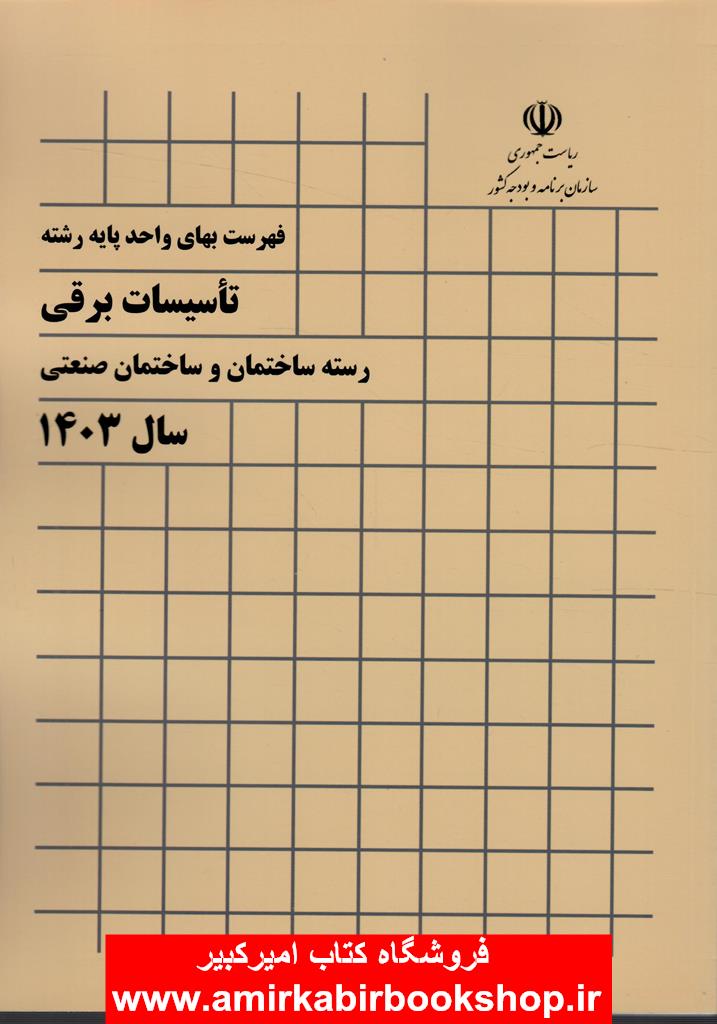 ریاست جمهوری
سازمان برنامه و بودجه کشور
فهرست بهای واحد پایه رشته
تأسیسات برقی
رسته ساختمان و ساختمان صنعتی
سال ۱۴۰۳
فروشگاه کتاب امیرکبیر
www.amirkabirbookshop.ir